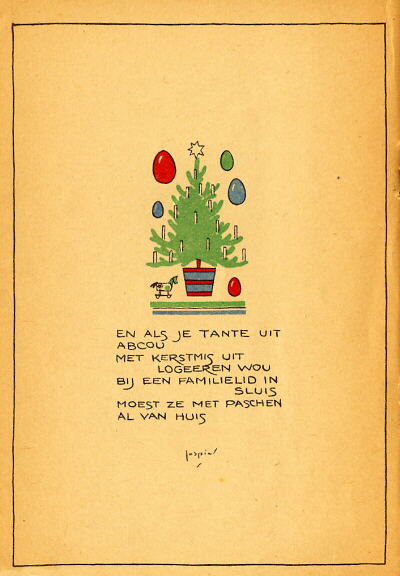 EN ALS JE TANTE UIT
ABCOU
MET KERSTMIS UIT
LOGEEREN WOU
BIJ EEN FAMILIELID IN
SLUIS
MOEST ZE MET PASCHEN
AL VAN HUIS